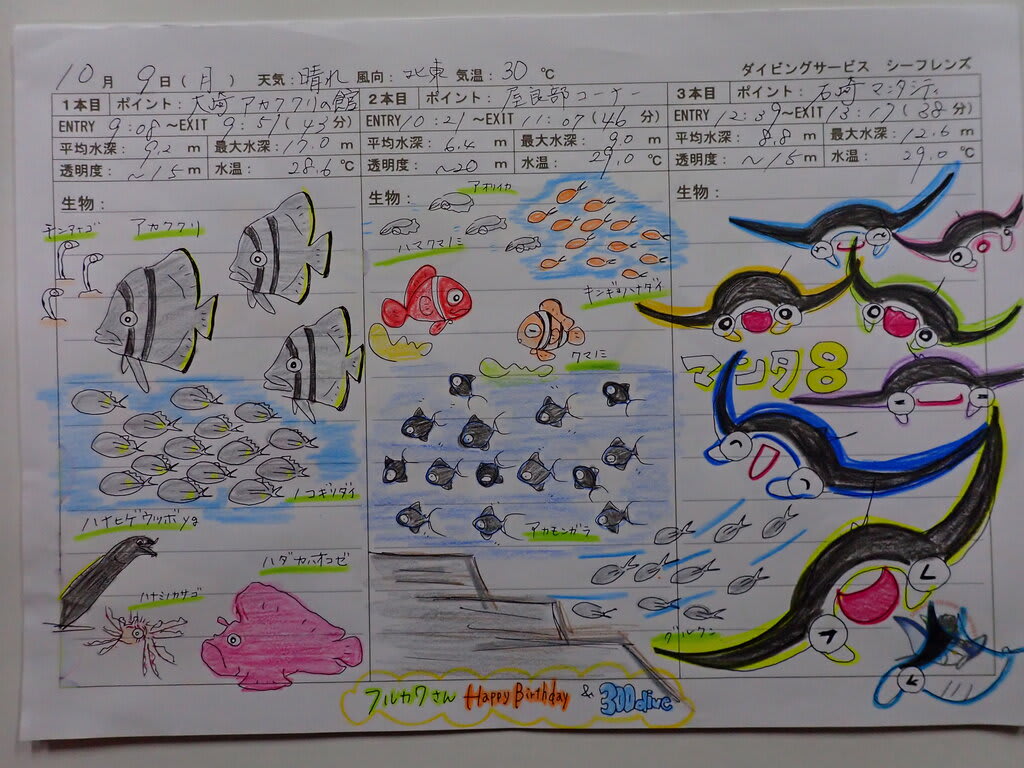 ダイビングサービス シーフレンズ
10月 9日(月) 天気:晴れ 風向:北東 気温:30℃
1本目 ポイント:大崎 アカククリの館
ENTRY 9:08~EXIT 9:51(43分)
平均水深: 9.2 m 最大水深:17.0 m
透明度: ~15 m 水温: 28.6 ℃
生物:
チンアナゴ
アカククリ
ノコギリダイ
ハナヒゲウツボyg
ハダカハオコゼ
ハナミノカサゴ
2本目 ポイント: 屋良部コーナー
ENTRY 10:21~EXIT 11:07(46分)
平均水深: 6.4 m 最大水深: 9.0 m
透明度: ~20 m 水温: 29.0 ℃
生物:
アオリイカ
ハマクマノミ
キンギョハナダイ
クマノミ
アカモンガラ
3本目 ポイント: 石崎 マンタシティ
ENTRY 12:39~EXIT 13:17(38分)
平均水深: 8.8 m 最大水深: 12.6 m
透明度: ~15 m 水温: 29.0 ℃
生物:
マンタ8
グルクン
フルカワさん Happy Birthday & 300dive